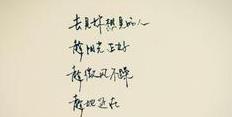 去见你想见的人
趁阳光正好
趁微风不噪
趁她还在